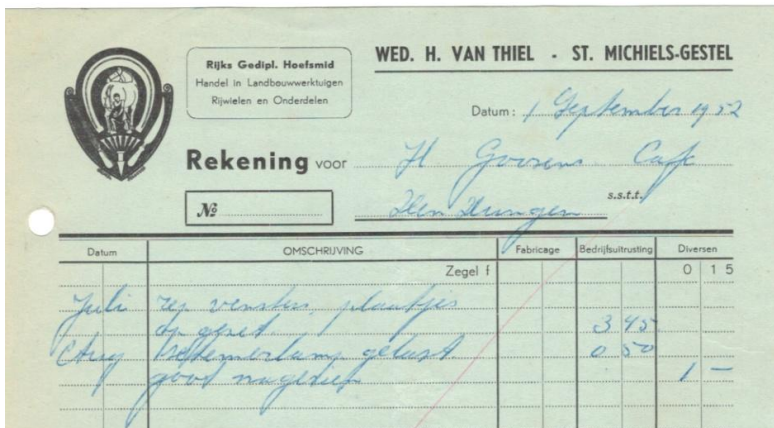 Rijks Gedipl. Hoefsmid
Handel in Landbouwwerktuigen
Rijwielen en Onderdelen
WED. H. VAN THIEL - ST. MICHIELS-GESTEL
Datum: 1 September 1952
Rekening voor H Goosens Café
№
Den Dungen s.s.t.t.
Datum OMSCHRIJVING Fabricage Bedrijfsuitrusting Diversen
Zegel f 0 15
Juli rep vensters, plaatjes
op gezet 3 45
Aug gelast 0 50
goot nagezien 1 -